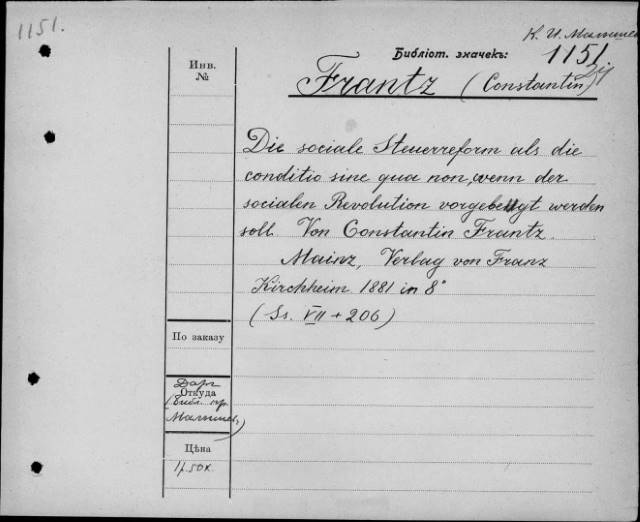 1151.
К. И. Малышев
Библіот. значекъ: 1151
Инв.
№
Frantz (Constantin)
Die sociale Steuerreform als die
conditio sine qua non, wenn der
socialen Revolution vorgebeugt werden
soll. Von Constantin Frantz.
Mainz, Verlag von Franz
Kirchheim 1881 in 8°
(Ss. VII + 206)
По заказу
Даръ
Откуда
Малышев)
Цѣна
1р. 50к.